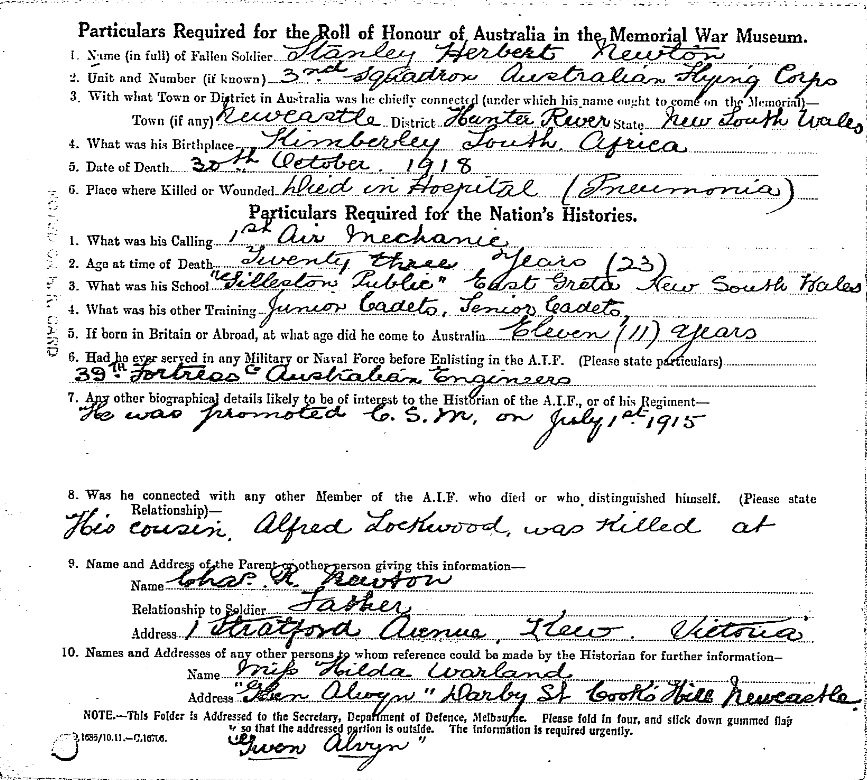 Particulars Required for the Roll of Honour of Australia in the Memorial War Museum.
1. Name (in full) of Fallen Soldier Stanley Herbert Newton
2. Unit and Number (if known) 3nd Squadron Australian Flying Corps
3. With what Town or District in Australia was he chiefly connected (under which his name ought to come on the Memorial)—
Town (if any) Newcastle District Hunter River State New South Wales
4. What was his Birthplace Kimberley South Africa
5. Date of Death 30th October. 1918
6. Place where Killed or Wounded Died in Hospital (Pneumonia)
Particulars Required for the Nation's Histories.
1. What was his Calling 1st Air Mechanic
2. Age at time of Death Twenty three Years (23)
3. What was his School "Gilleston Public" East Greta New South Wales
4. What was his other Training Junior Cadets, Senior Cadets,
5. If born in Britain or Abroad, at what age did he come to Australia Eleven (11) years
6. Had he ever served in any Military or Naval Force before Enlisting in the A.I.F. (Please state particulars)
39TH Fortress Co Australian Engineers
7. Any other biographical details likely to be of interest to the Historian of the A.I.F., or of his Regiment—
He was promoted C.S.M. on July 1st 1915
8. Was he connected with any other Member of the A.I.F. who died or who distinguished himself. (Please state
Relationship)—
His cousin, Alfred Lockwood, was killed at
9. Name and Address of the Parent or other person giving this information—
Name Chas. R. Newton
Relationship to Soldier Father
Address 1 Stratford Avenue, Kew. Victoria
10. Names and Addresses of any other persons to whom reference could be made by the Historian for further information—
Name Miss Hilda Warland
Address "Glen Alwyn" Darby St Cook's Hill Newcastle.
NOTE.—This Folder is Addressed to the Secretary, Department of Defence, Melbourne. Please fold in four, and stick down gummed flap
so that the addressed portion is outside. The information is required urgently.
"Gwen Alvyn"